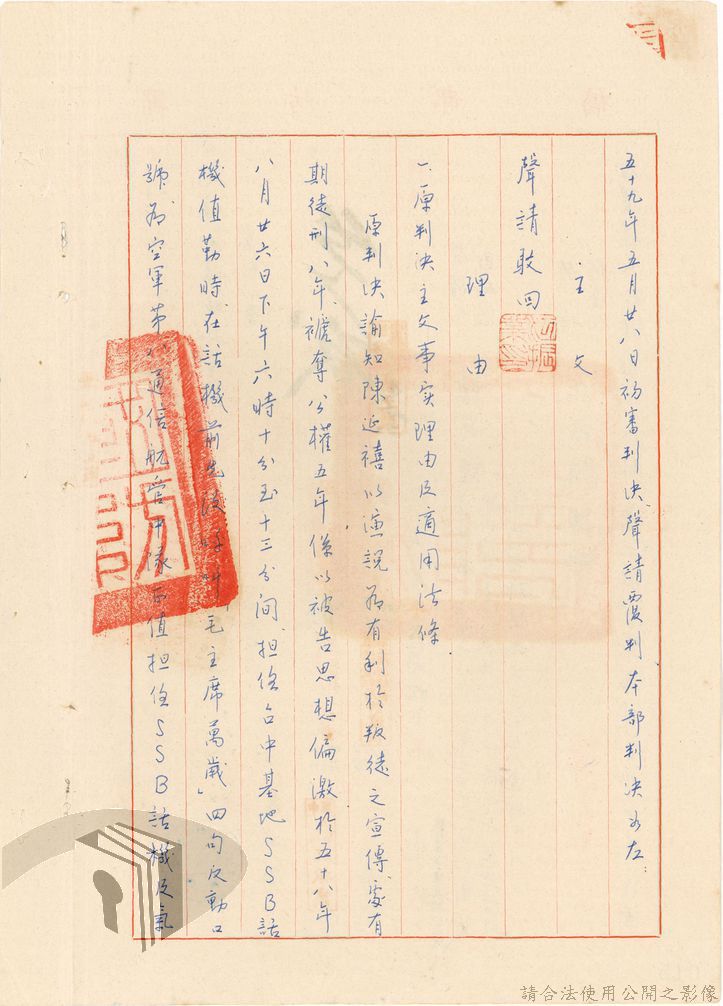 五十九年五月廿八日初審判決、聲請覆判、本部判決如左：
主文
聲請駁回
理由
一、原判決主文事实理由及適用法條。
原判決諭知陳延禧以演説為有利於叛徒之宣傳、處有
期徒刑八年、褫奪公權五年、係以被告思想偏激、於五十八年
八月廿六日下午六時十分至十三分間、担任台中基地SSB話
機值勤時、在話機前先後呼叫「毛主席萬歲」四句反動口
號、為空軍第八通信航管中隊值担任SSB話機及氣
請合法使用公開之影像